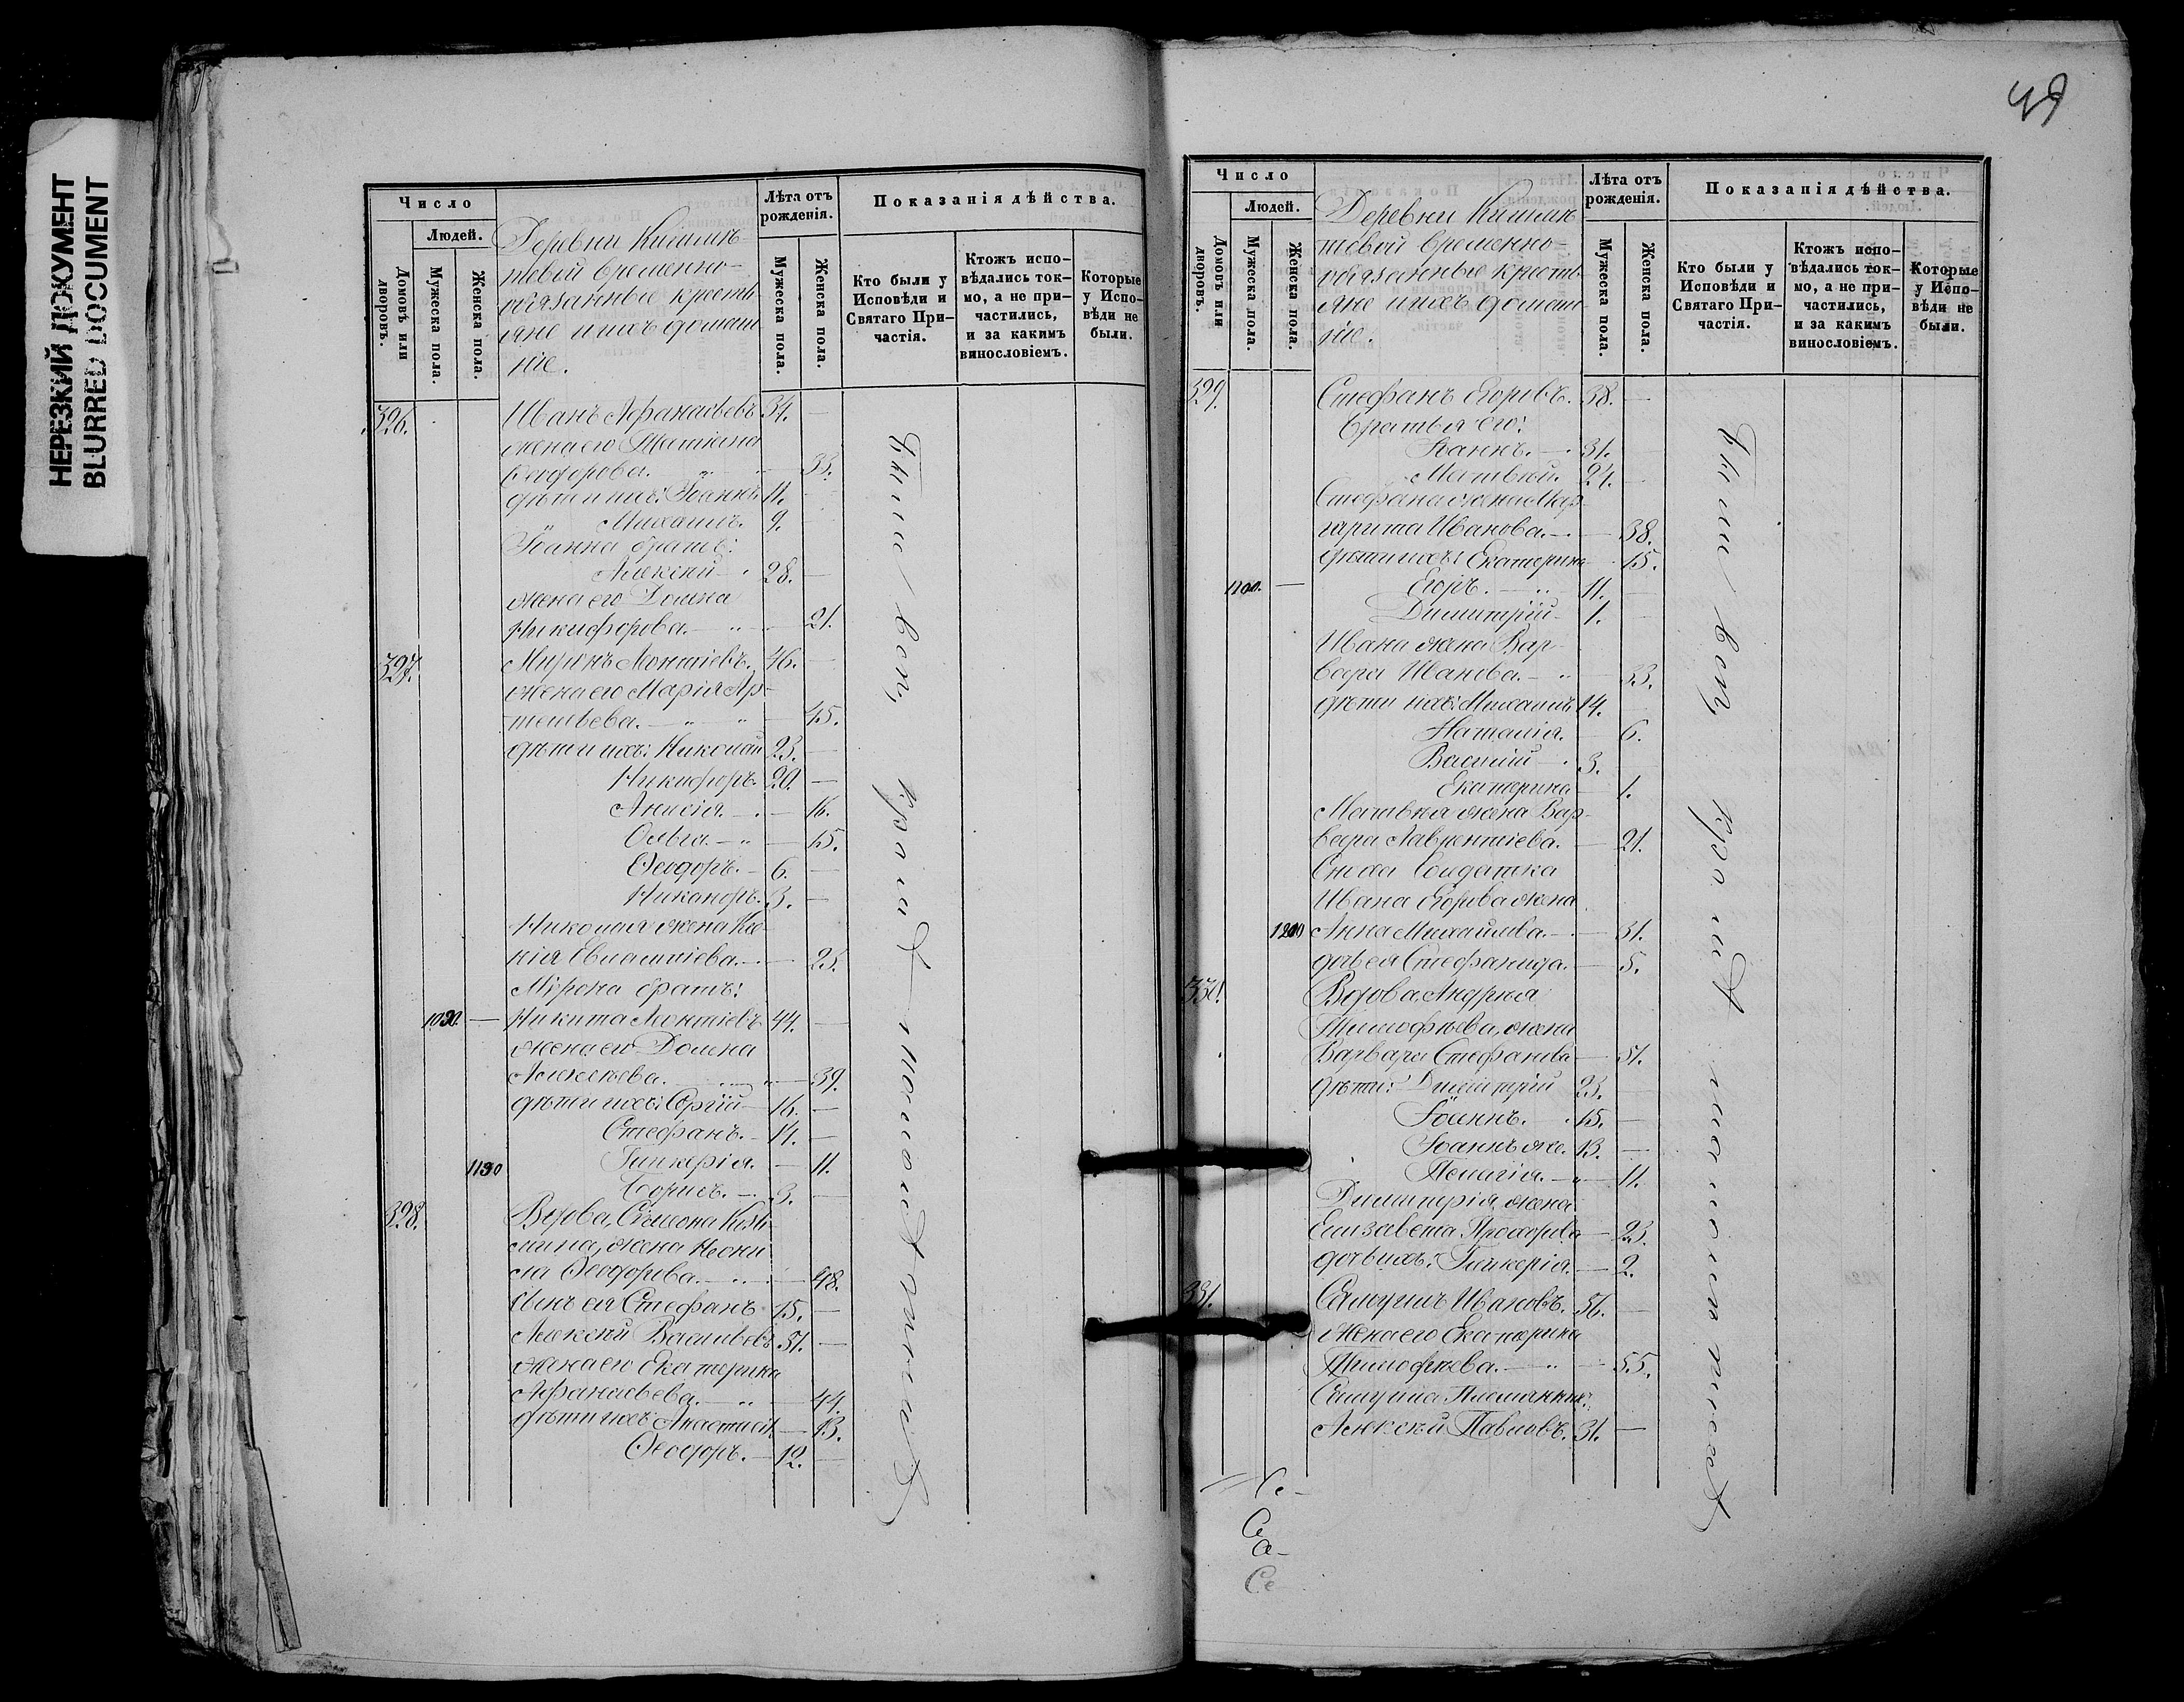 НЕРЕЗКИЙ ДОКУМЕНТ
BLURRED DOCUMENT
Число
Людей.
Домовъ или дворовъ.
Мужеска пола.
Женска пола.
Деревни
временно-
обязанные крестья-
яне и ихъ домаш
ніе.
Лѣта отъ рожденія.
Мужеска пола.
Женска пола.
Показанія дѣйства.
Кто были у Исповѣди и Святаго При-частія.
Ктожъ испо-вѣдались ток-мо, а не при-частились, и за какимъ винословіемъ.
Которые у Испо-вѣди не были.
326. Иванъ Афанасьевъ 34. —
жена его Татіана
Ѳеодорова. — 33.
дѣти ихъ: Іоаннъ 11. —
Михаилъ. 9. —
Іоанна братъ:
Алексій 28. —
жена его Домна
Никифорова. — 21.
327. Миронъ Леонтіевъ. 46. —
жена его Марія Ар-
темьева. — 45.
дѣти ихъ: Николай 23. —
Никифоръ. 20. —
Анисія. — 16.
Ольга. — 15.
Ѳеодоръ. — 6. —
Никаноръ. 3. —
Николая жена
Евпатиева. — 25.
Мирона братъ:
1090. — Никита Леонтіевъ 44. —
жена его Домна
Алексѣева. — 39.
дѣти ихъ: Сергій 16. —
Стефанъ. — 14. —
1130 Гликерія. — 11.
Борисъ. — 3. —
328. Вдова, Симеона Козь-
мина, жена Неони
ла Ѳеодорова. — 48.
сынъ ея Стефанъ 15. —
Алексій Васильевъ 51. —
жена его Екатерина
Афанасьева. — 44.
дѣти ихъ: Анастасія — 13.
Ѳеодоръ. — 12. —
49
Число
Людей.
Домовъ или дворовъ.
Мужеска пола.
Женска пола.
Деревни
временно-
обязанные крестья-
яне и ихъ домаш
ніе.
Лѣта отъ рожденія.
Мужеска пола.
Женска пола.
Показанія дѣйства.
Кто были у Исповѣди и Святаго При-частія.
Ктожъ испо-вѣдались ток-мо, а не при-частились, и за какимъ винословіемъ.
Которые у Испо-вѣди не были.
329. Стефанъ Егоровъ. 38. —
Братья его:
Іоаннъ. — 31. —
Матвѣй. 24. —
Стефана жена Мар-
гарита Иванова. — 38.
дѣти ихъ: Екатерина — 15.
1100. — Егоръ. — 11. —
Димитрій — 1. —
Ивана жена Вар-
вара Иванова. — 33.
дѣти ихъ: Михаилъ 14. —
Наталія. — 6.
Василій — 3. —
Екатерина — 1.
Матвѣя жена Вар-
вара Лаврентіева. — 21.
Сноха Солдатка
Ивана Егорова жена
Анна Михайлова. — 31.
дочь ея Стефанида. — 5.
330. Вдова, Андрея
Тимофѣева, жена
Варвара Стефанова — 51.
дѣти: Димитрій 23. —
Іоаннъ. 15. —
Іоаннъ же. 13. —
Пелагія. — 11.
Димитрія жена
Елизавета Прохорова — 23.
дочь ихъ: Гликерія. — 2.
331. Самуилъ Ивановъ. 56. —
жена его Екатерина
Тимофѣева. — 55.
Самуила Племянникъ:
Алексѣй Павловъ. 31. —